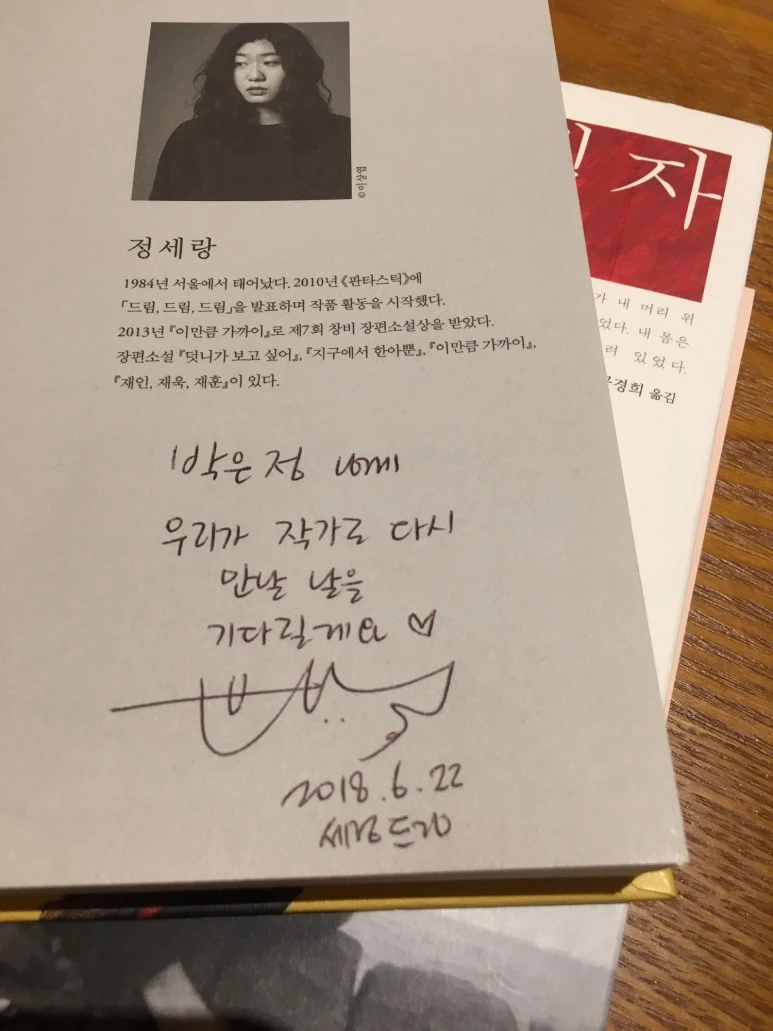 ©이상엽
정세랑
1984년 서울에서 태어났다. 2010년 《판타스틱》에
「드림, 드림, 드림」을 발표하며 작품 활동을 시작했다.
2013년 『이만큼 가까이』로 제7회 창비 장편소설상을 받았다.
장편소설 『덧니가 보고 싶어』, 『지구에서 한아뿐』, 『이만큼 가까이』,
『재인, 재욱, 재훈』이 있다.
박은정 님께
우리가 작가로 다시
만날 날을
기다릴게요 ♡
2018.6.22
세랑 드림
자
가 내 머리 위
었다. 내 몸은
려 있었다.
경희 옮김